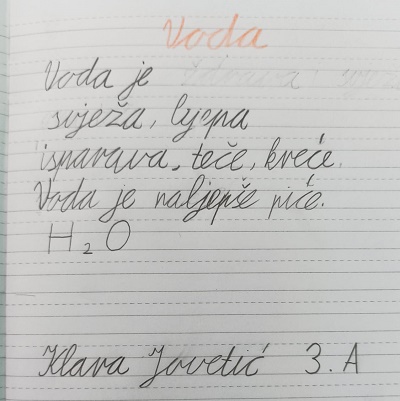 Voda
Voda je zdrava,
svježa, ljepa
isparava, teče, kreće.
Voda je naljepše piće.
H₂O
Klara Jovetić 3. A